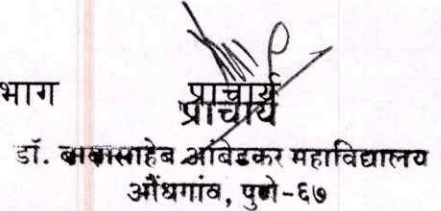 भाग
प्राचार्य
प्राचार्य
डॉ. बाबासाहेब आंबेडकर महाविद्यालय
औंधगांव, पुणे-६७